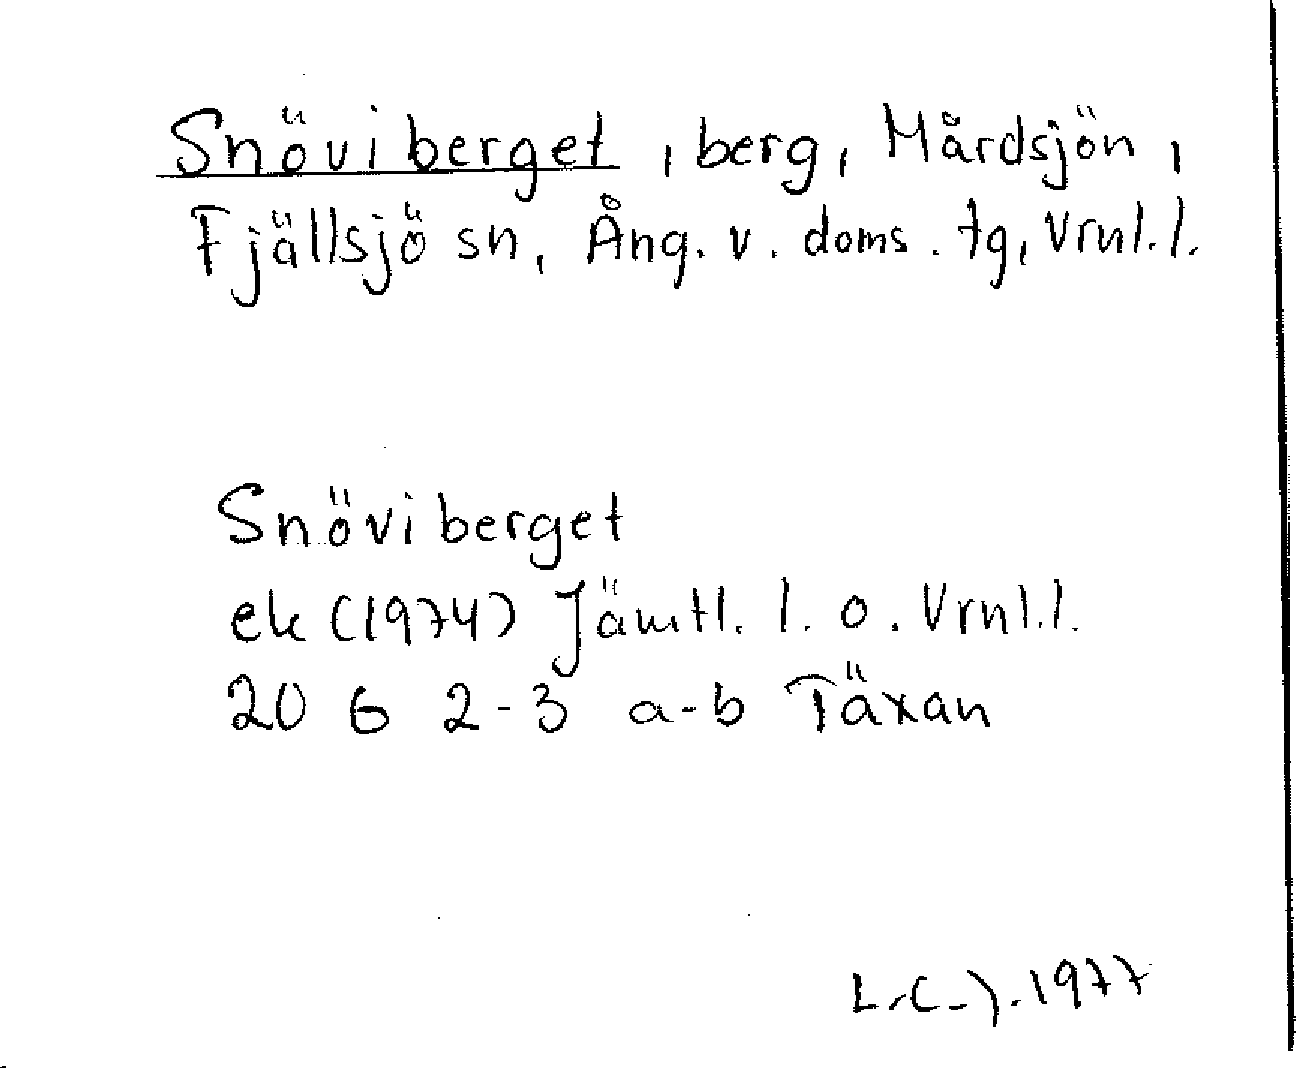 Snöviberget, berg, Mårdsjön,
Fjällsjö sn, Ång. v. doms. tg, Vrnl. l.
Snöviberget
ek (1974) Jämtl. l. o. Vrnl. l.
20 G 2-3 a-b Täxan
L-C-J. 1977